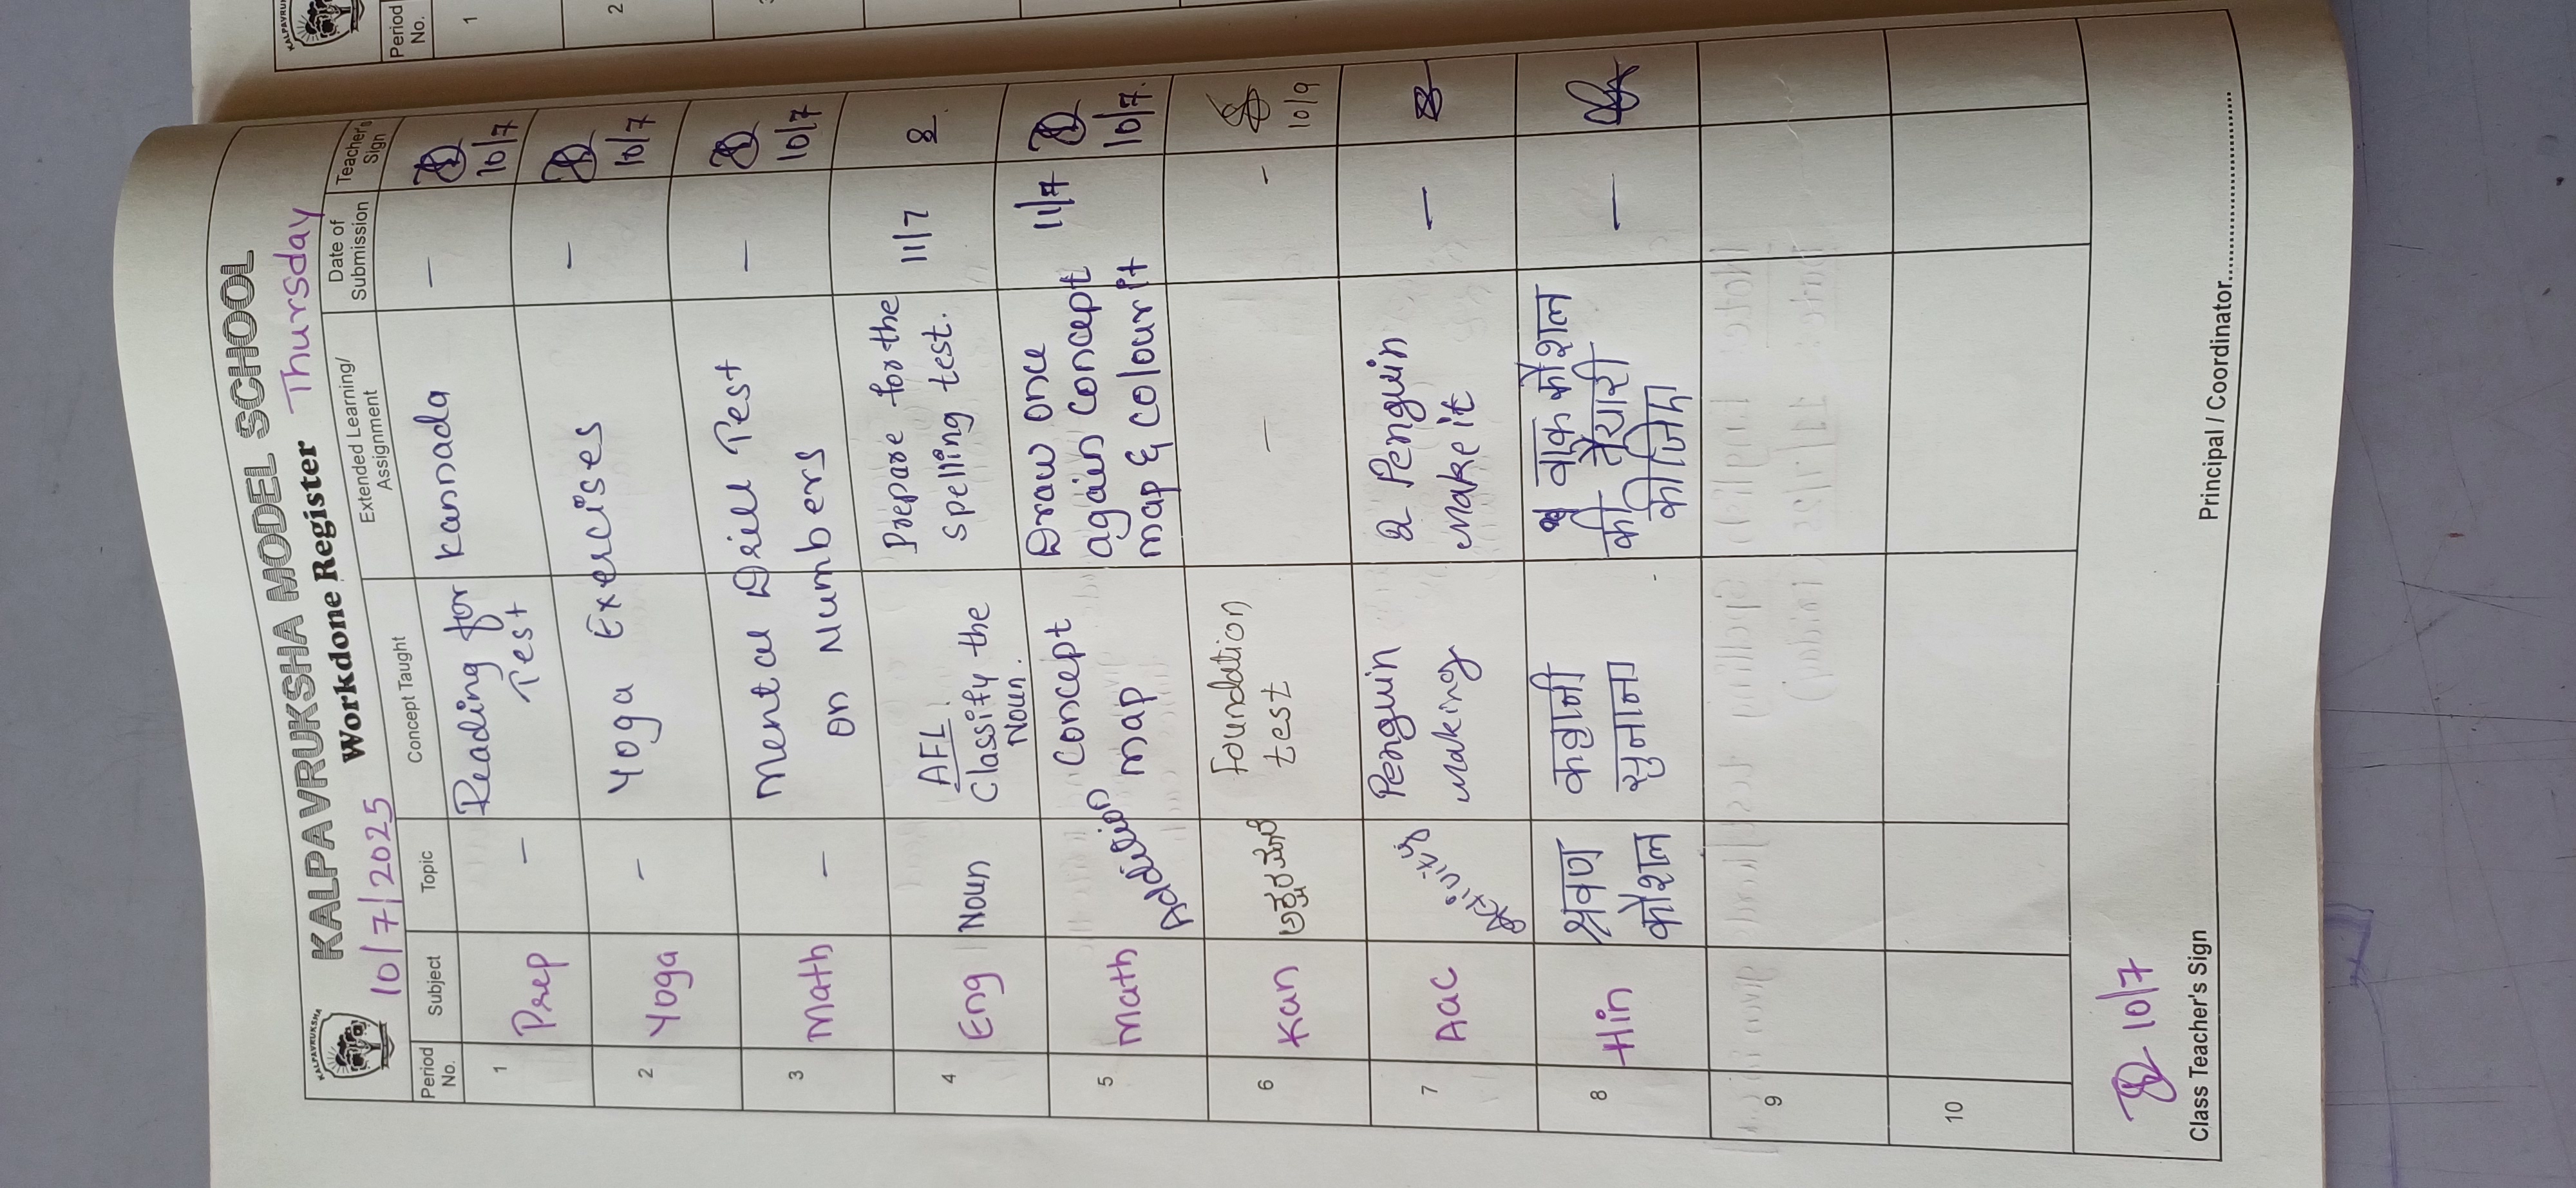 KALPAVRUKSHA
KALPAVRUKSHA MODEL SCHOOL
Workdone Register
10/7/2025
Thursday
Period No.
Subject
Topic
Concept Taught
Extended Learning/ Assignment
Date of Submission
Teacher's Sign
1
Prep
–
Reading for kannada
Test
–
10/7
2
Yoga
–
Yoga Exercises
–
10/7
3
Math
–
Mental Drill Test
on Numbers
–
10/7
4
Eng
Noun
AFL.
Classify the
Noun.
Prepare for the
spelling test.
11/7
5
Math
Addition
Concept
map
Draw once
again concept
map & colour it
11/7
10/7.
6
Kan
Foundation
test
–
–
10/9
7
Aac
Penguin
Making
2 Penguin
Make it
–
8
Hin
श्रवण
कौशल
कहानी
सुनाना
वाक कौशल
की तैयारी
कीजिए
–
9
10
10/7
Class Teacher's Sign
Principal / Coordinator
KALPAVRU
Period No.
1
2